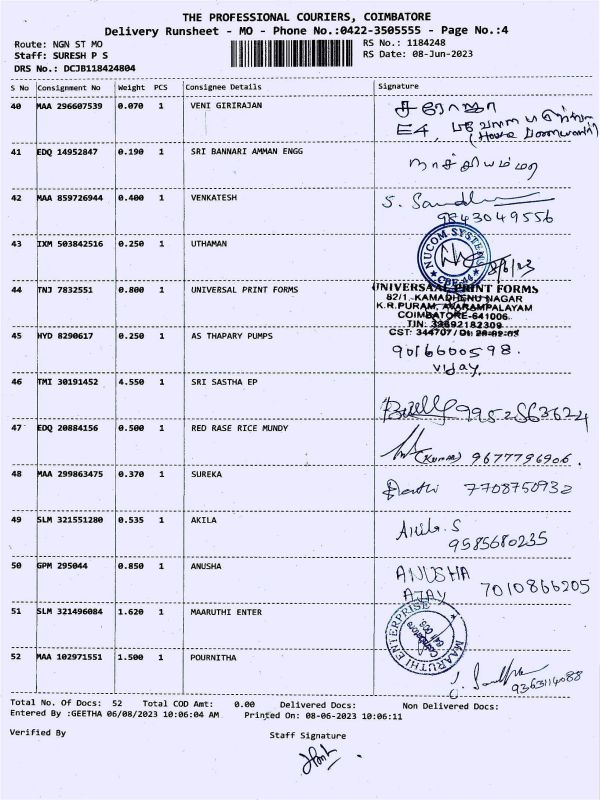 THE PROFESSIONAL COURIERS, COIMBATORE
Delivery Runsheet - MO - Phone No.:0422-3505555 - Page No.:4
Route: NGN ST MO
Staff: SURESH P S
DRS No.: DCJB118424804
RS No.: 1184248
RS Date: 08-Jun-2023
S No Consignment No Weight PCS Consignee Details Signature
40 MAA 296607539 0.070 1 VENI GIRIRAJAN சரோஜா
E4,
41 EDQ 14952847 0.190 1 SRI BANNARI AMMAN ENGG
42 MAA 859726944 0.400 1 VENKATESH
9843049556
43 IXM 503842516 0.250 1 UTHAMAN NUCOM SYSTEMS
44 TNJ 7832551 0.800 1 UNIVERSAL PRINT FORMS UNIVERSAL PRINT FORMS
82/1, KAMADHENU NAGAR
K.R.PURAM, AVARAMPALAYAM
COIMBATORE-641006
TIN:
CST: 344707/Dt.
45 HYD 8290617 0.250 1 AS THAPARY PUMPS 9016600598.
Vijay.
46 TMI 30191452 4.550 1 SRI SASTHA EP
47 EDQ 20884156 0.500 1 RED RASE RICE MUNDY (Kumar) 9677796906.
48 MAA 299863475 0.370 1 SUREKA 7708750932
49 SLM 321551280 0.535 1 AKILA Akila. S
9585680235
50 GPM 295044 0.850 1 ANUSHA ANUSHA
AJAY 7010866205
51 SLM 321496084 1.620 1 MAARUTHI ENTER MAARUTHI ENTERPRISE
Coimbatore
641 005
52 MAA 102971551 1.500 1 POURNITHA
9363114088
Total No. Of Docs: 52 Total COD Amt: 0.00 Delivered Docs: Non Delivered Docs:
Entered By :GEETHA 06/08/2023 10:06:04 AM Printed On: 08-06-2023 10:06:11
Verified By
Staff Signature